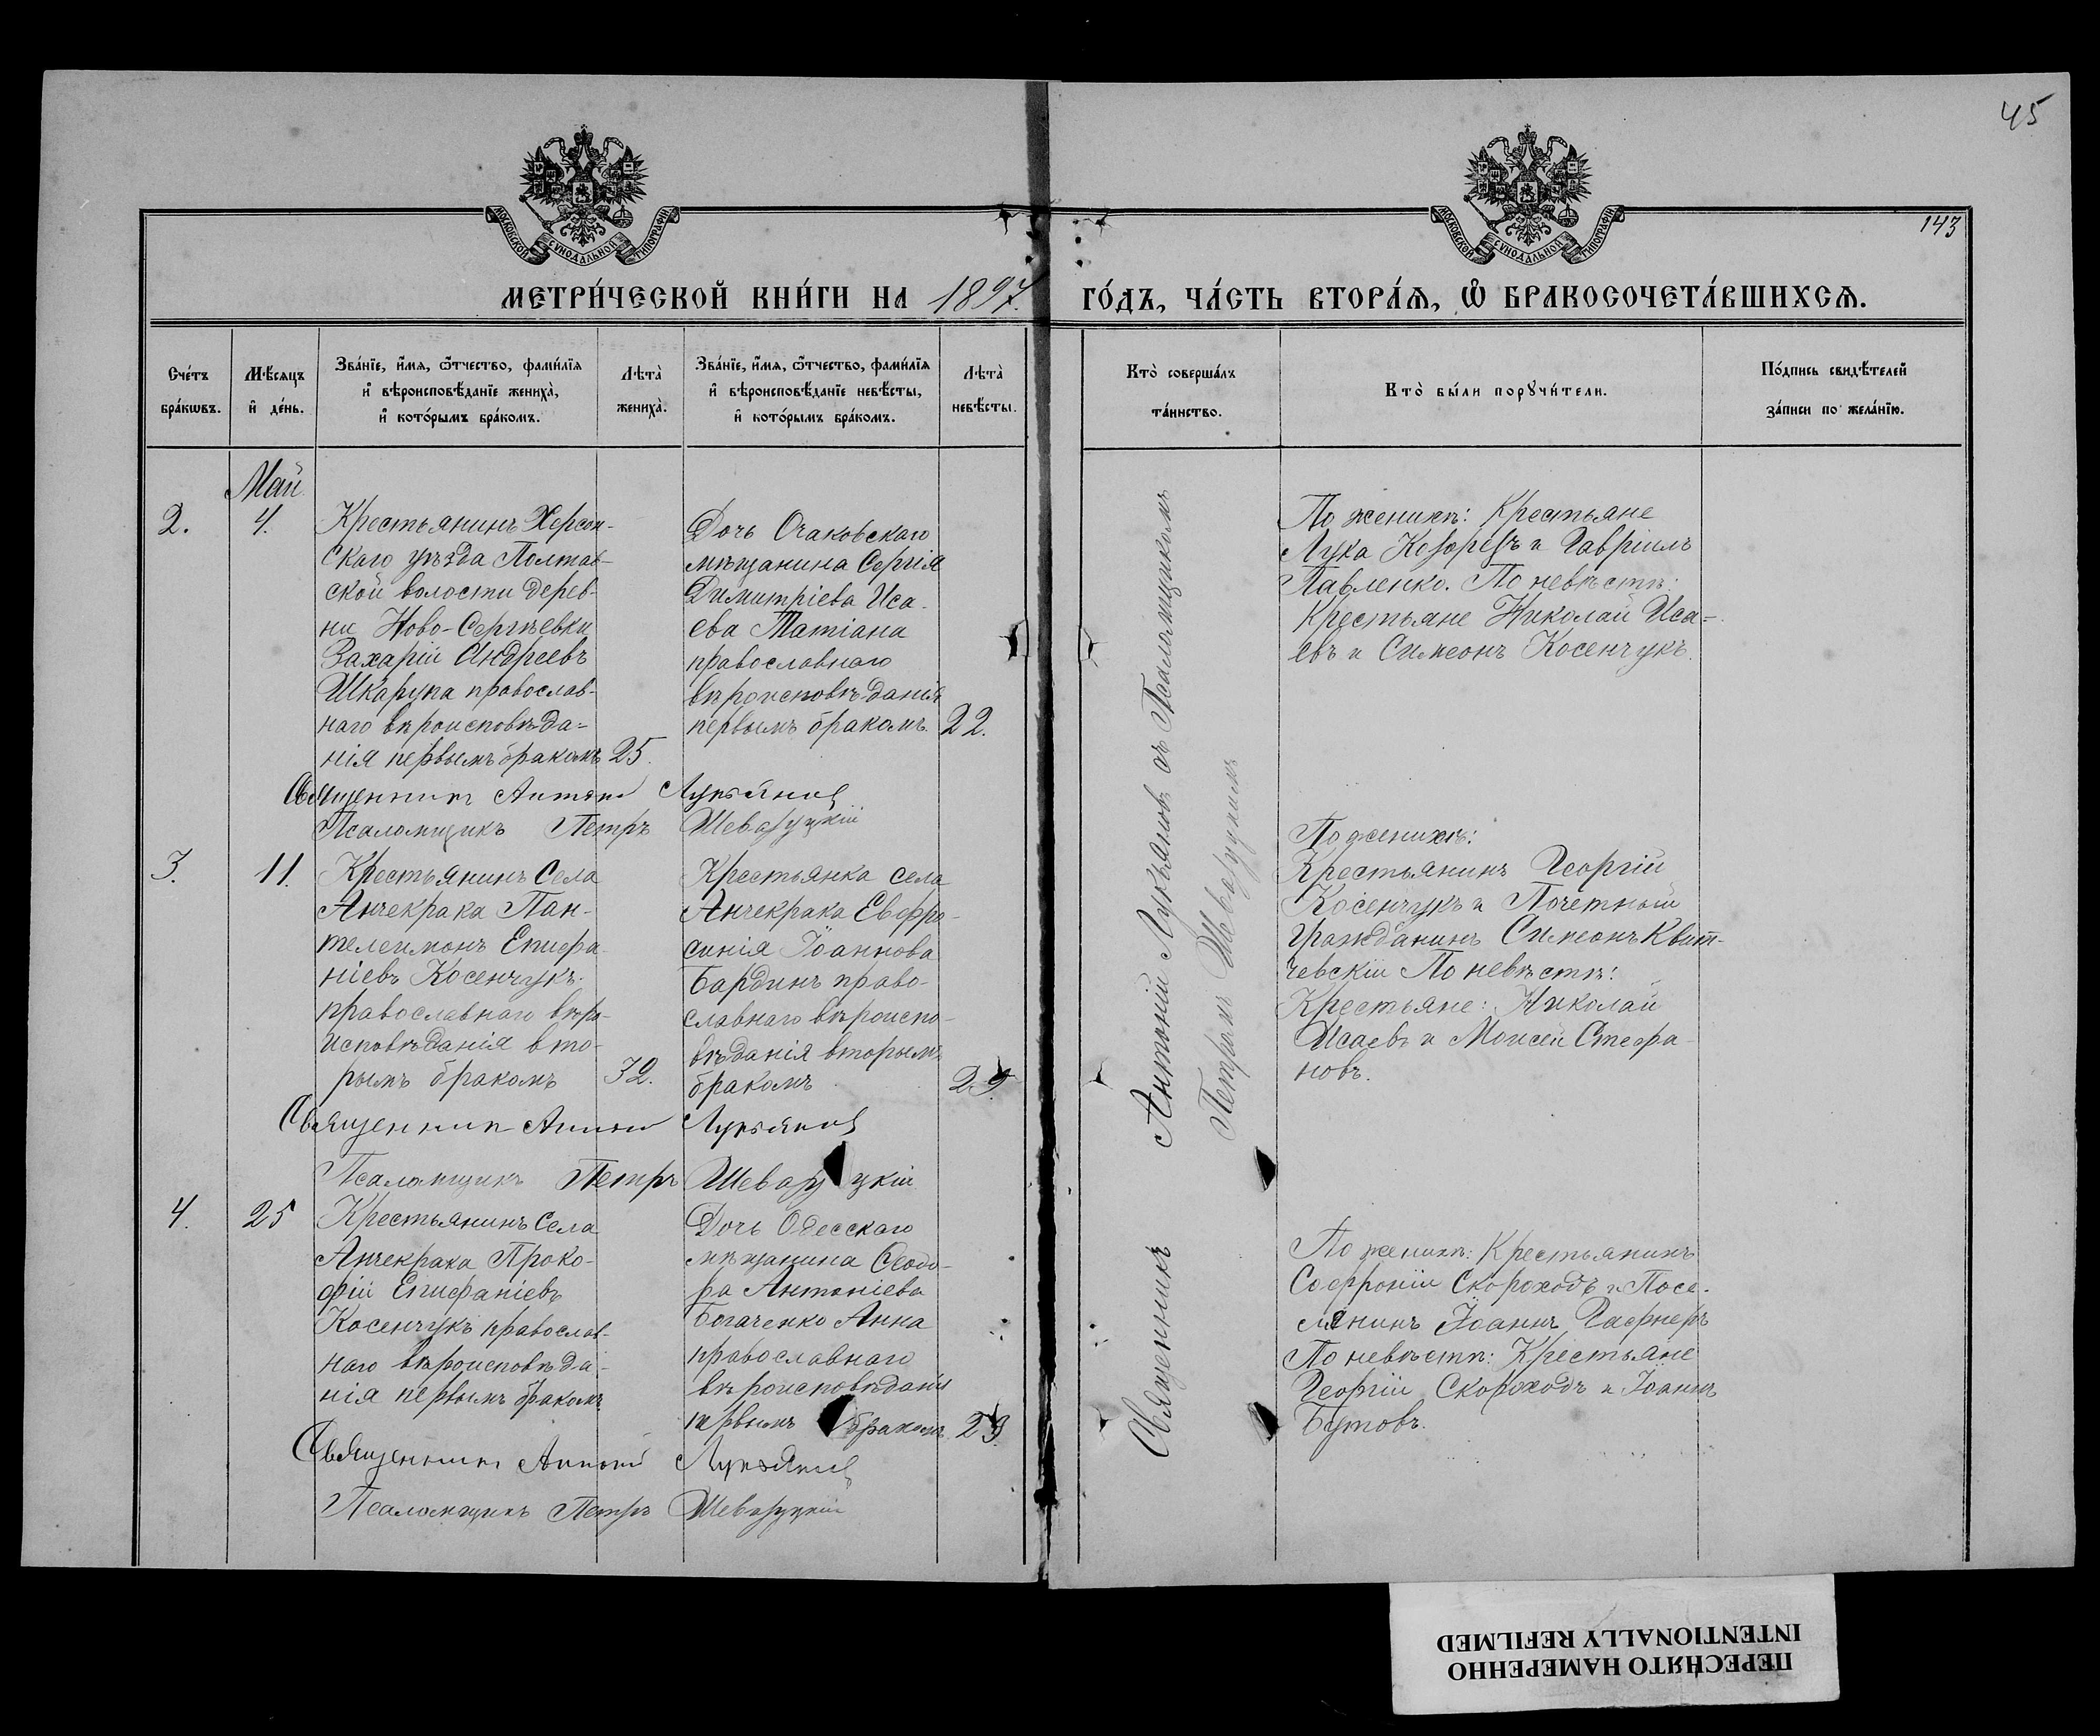 45
143
МОСКОВСКОЙ СѴНОДАЛЬНОЙ ТИПОГРАФІИ
МОСКОВСКОЙ СѴНОДАЛЬНОЙ ТИПОГРАФІИ
МЕТРИ́ЧЕСКОЙ КНИ́ГИ НА 1897. ГО́ДЪ, ЧА́СТЬ ВТОРА́Ѧ, Ѡ҆ БРАКОСОЧЕТА́ВШИХСѦ.
Сче́тъ бра́кѡвъ.
Мѣ́сяцъ и҆ де́нь.
Зва́нїе, и҆́мѧ, ѻ҆́тчество, фами́лїѧ
и҆ вѣроисповѣ́данїе жениха̀,
и҆ кото́рымъ бра́комъ.
Лѣта̀ жениха̀.
Зва́нїе, и҆́мѧ, ѻ҆́тчество, фами́лїѧ
и҆ вѣроисповѣ́данїе невѣ́сты,
и҆ кото́рымъ бра́комъ.
Лѣта̀ невѣ́сты.
Кто̀ соверша́лъ
та́инство.
Кто̀ бы́ли порꙋчи́тели.
По́дпись свидѣ́телей
за́писи по жела́нїю.
Май
2.
4.
Крестьянинъ Херсон-
скаго уѣзда Полтав-
ской волости дерев-
ни Ново-Сергѣевки
Захарій Андреевъ
Шкарупа православ-
наго вѣроисповѣда-
нія первымъ бракомъ
25.
Дочь Очаковскаго
мѣщанина Сергія
Димитріева Иса-
ева Татіана
православнаго
вѣроисповѣданія
первымъ бракомъ.
22.
Священникъ Антоній Лукьяновъ
Псаломщикъ Петръ Шеваруцкій
По женихѣ: Крестьяне
Лука и Гавріилъ
Павленко. По невѣстѣ:
Крестьяне Николай Иса-
евъ и Симеонъ Косенчукъ.
3.
11.
Крестьянинъ Села
Анчекрака Пан-
телеимонъ Епифа-
ніевъ Косенчукъ
православнаго вѣро-
исповѣданія вто-
рымъ бракомъ
32.
Крестьянка села
Анчекрака Евфро-
синія Іоаннова
Бардинъ право-
славнаго вѣроиспо-
вѣданія вторымъ
бракомъ
29.
Священникъ Антоній Лукьяновъ
Псаломщикъ Петръ Шеваруцкій
По женихѣ:
Крестьянинъ Георгій
Косенчукъ и Почетный
гражданинъ Симеонъ Квит-
чевскій По невѣстѣ:
Крестьяне: Николай
Исаевъ и Моисей Стефа-
новъ.
4.
25
Крестьянинъ Села
Анчекрака Проко-
фій Епифаніевъ
Косенчукъ православ-
наго вѣроисповѣда-
нія первымъ бракомъ
Дочь Одесскаго
мѣщанина Ѳеодо-
ра Антоніева
Богаченко Анна
православнаго
вѣроисповѣданія
первымъ бракомъ
23.
Священникъ Антоній Лукьяновъ
Псаломщикъ Петръ Шеваруцкій
По женихѣ: Крестьянинъ
Софроній Скороходъ и Посе-
лянинъ Іоаннъ Гафнеръ
По невѣстѣ: Крестьяне
Георгій Скороходъ и Іоаннъ
Бутовъ.
Священникъ Антоній Лукьяновъ съ Псаломщикомъ
Петромъ Шеваруцкимъ
ПЕРЕСНЯТО НАМЕРЕННО
INTENTIONALLY REFILMED